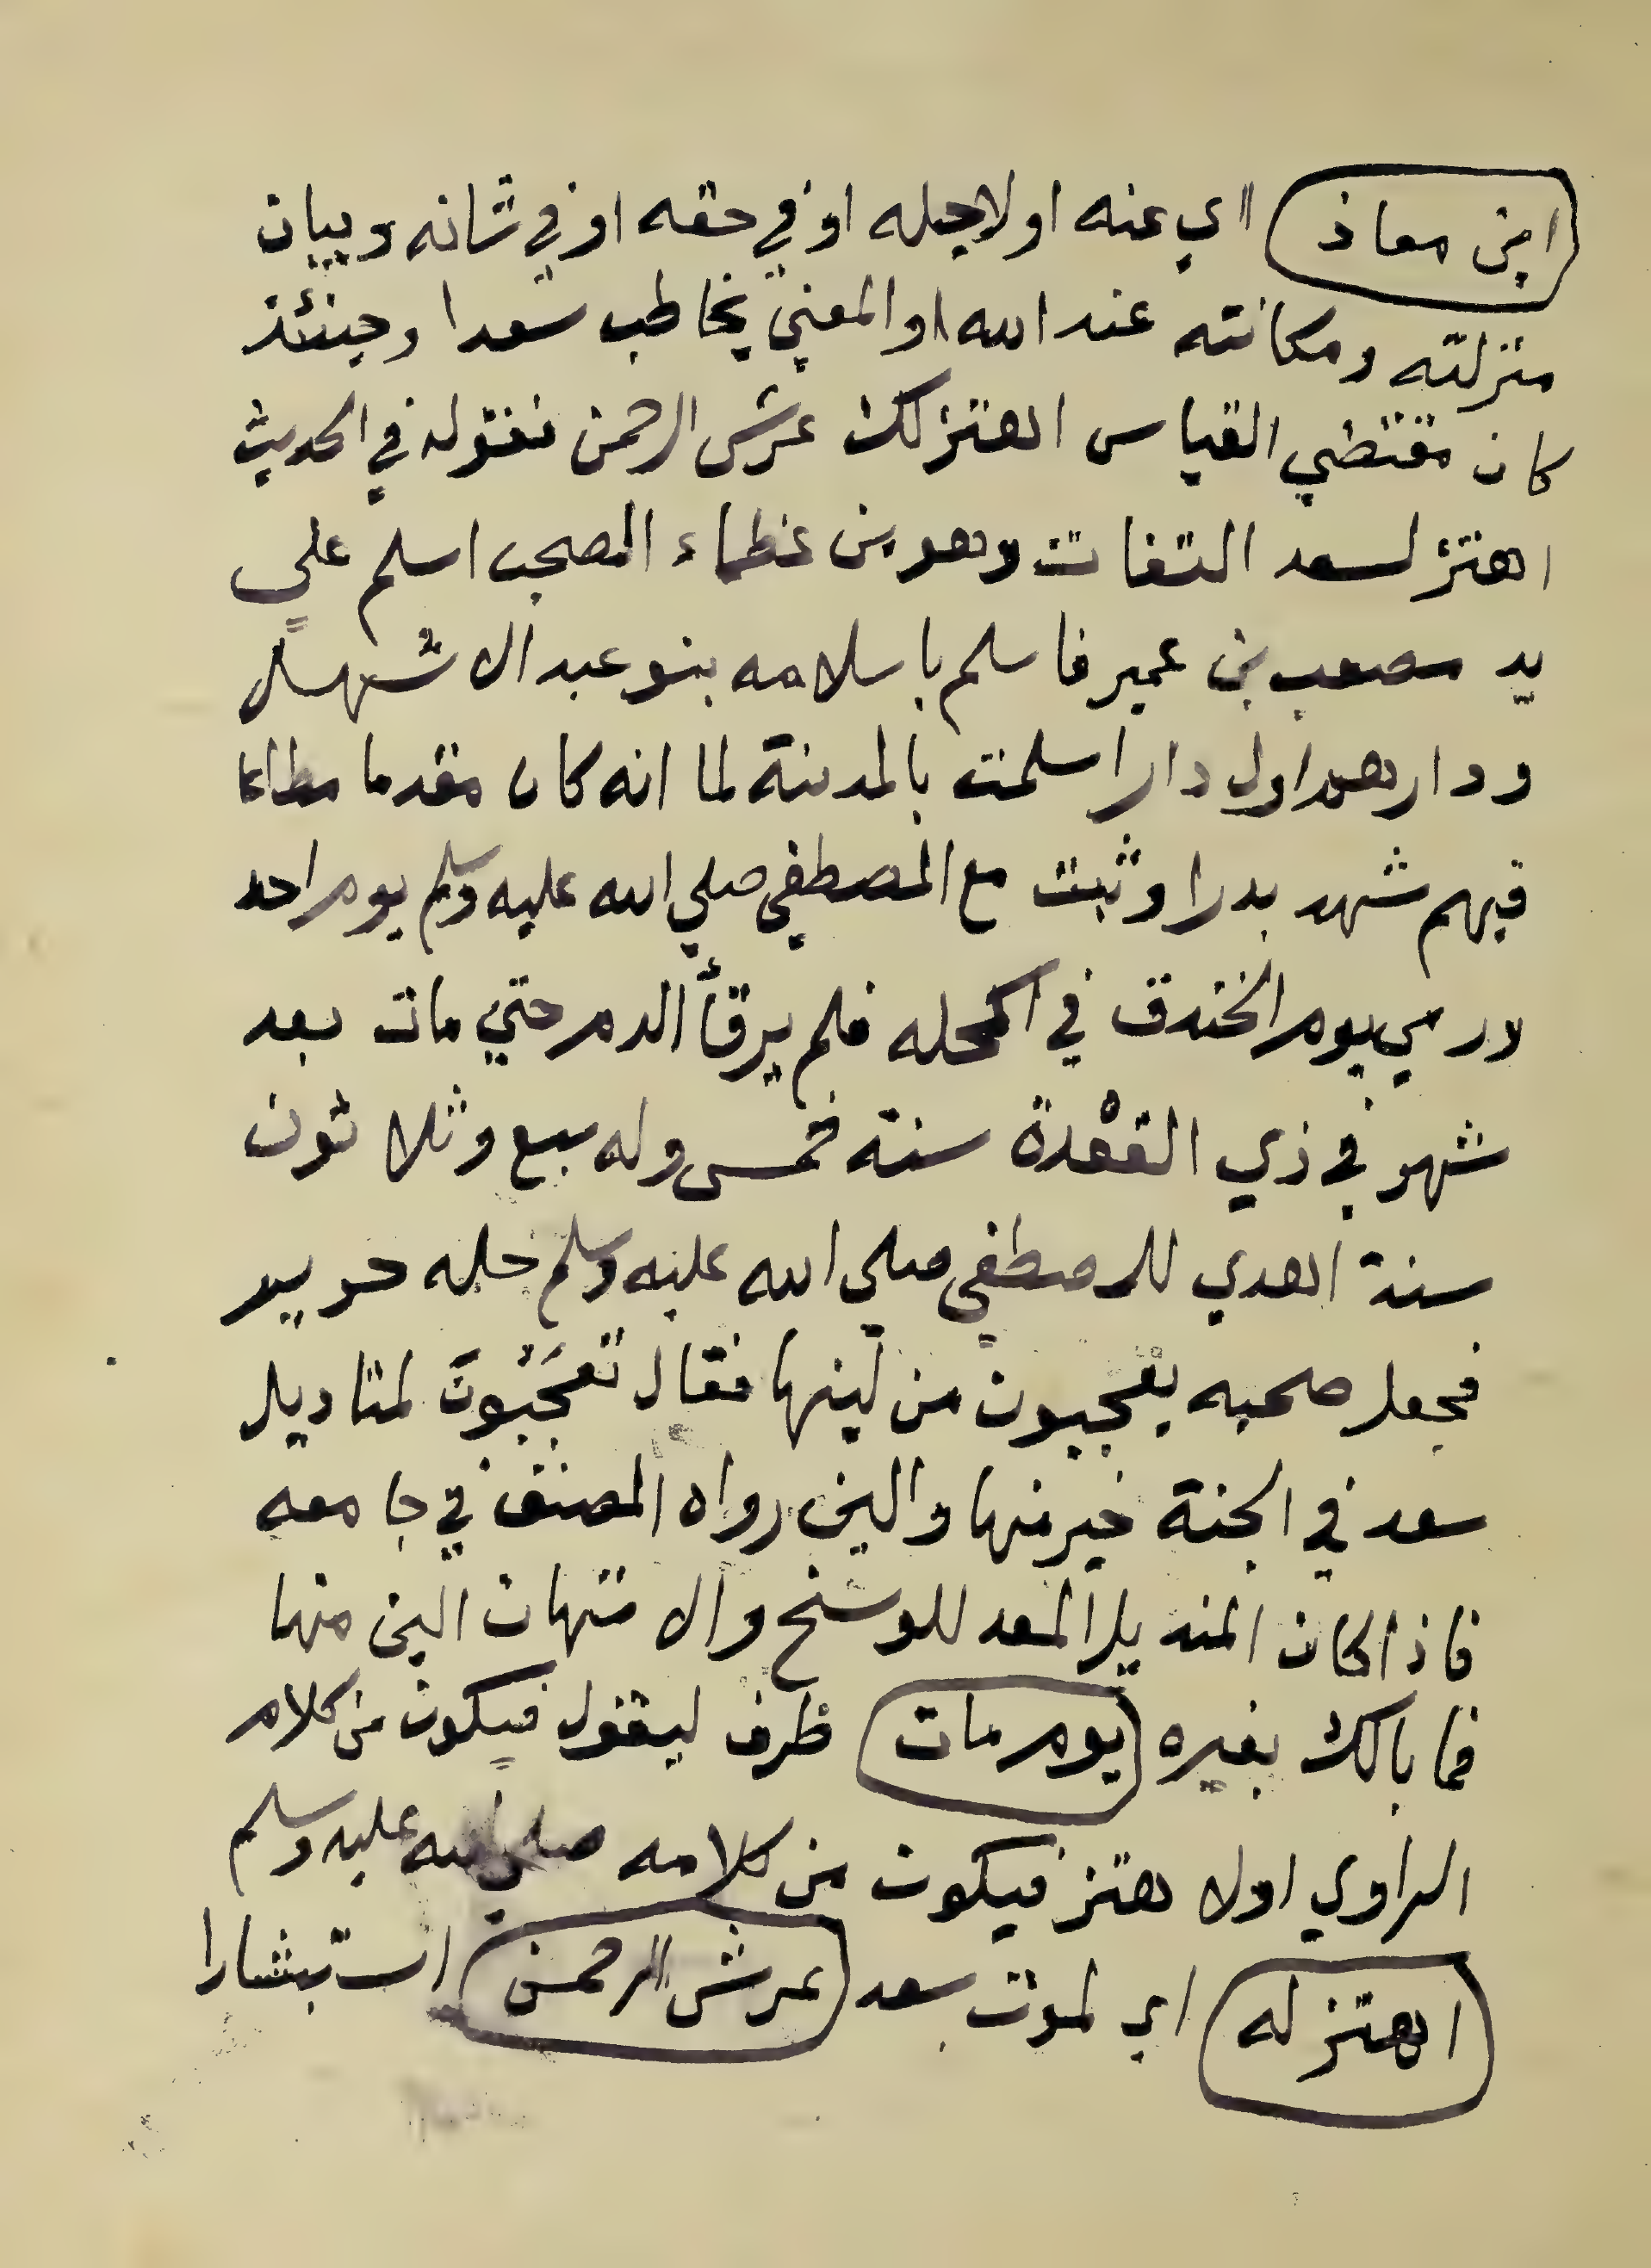 ابن معاذ اي عنه او لاجله او في حقه او في شانه وبيان
منزلته ومكانته عند الله او المعني يخاطب سعدا وحينئذ
كان مقتضي القياس اهتز لك عرش الرحمن فقوله في الحديث
اهتز لسعد التفات وهو من عظماء الصحب اسلم علي
يد مصعب بن عمير فاسلم باسلامه بنو عبد الاشهل
ودارهم اول دار اسلمت بالمدينة لما انه كان مقدما مطاعا
فيهم شهد بدرا وثبت مع المصطفي صلي الله عليه وسلم يوم احد
ورمي يوم الخندق في اكحله فلم يرقأ الدم حتي مات بعد
شهر في ذي القعْدة سنة خمس وله سبع وثلاثون
سنة اهدي للمصطفي صلي الله عليه وسلم حله حرير
فجعل صحبه يعجبون من لينها فقال تعجَبُونَ لمناديل
سعد في الجنة خير منها والين رواه المصنف في جامعه
فاذا كان المنديل المعد للوسخ والامتهان الين منها
فما بالك بغيره يوم مات ظرف ليقول فيكون من كلام
الراوي او لاهتز فيكون من كلامه صلي الله عليه وسلم
اهتز له اي لموت سعد عرش الرحمن استبشارا